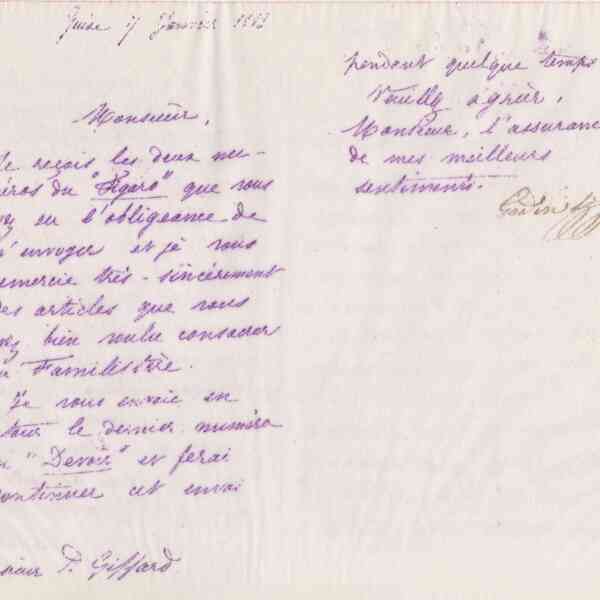 Guise 17 Janvier 1883
Monsieur,
Je reçois les deux nu-
éros du "Figaro" que vous
ez eu l'obligeance de
'envoyer et je vous
emercie très-sincèrement
des articles que vous
ez bien voulu consacrer
u Familistère.
Je vous envoie en
tour le dernier numéro
u "Devoir" et ferai
continuer cet envoi
sieur P. Giffard
pendant quelque temps
Veuillez agréer,
Monsieur, l'assurance
de mes meilleurs
sentiments.
Godin